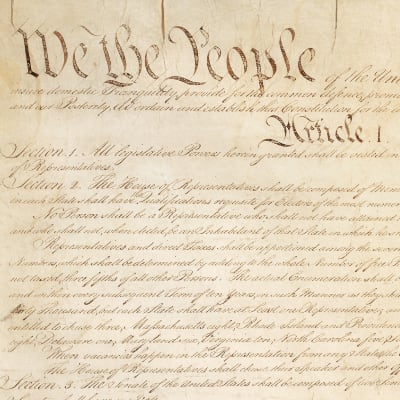 We the People of the Uni
insure domestic Tranquility, provide for the common defence, promo
and our Posterity, do ordain and establish this Constitution for the
Article. I.
Section. 1. All legislative Powers herein granted shall be vested in
of Representatives.
Section. 2. The House of Representatives shall be composed of Mem
in each State shall have Qualifications requisite for Electors of the most numer
No Person shall be a Representative who shall not have attained
and who shall not, when elected, be an Inhabitant of that State in which he sh
Representatives and direct Taxes shall be apportioned among the sever
Numbers, which shall be determined by adding to the whole Number of free P
not taxed, three fifths of all other Persons. The actual Enumeration shall
and within every subsequent Term of ten Years, in such Manner as they sha
thirty Thousand, but each State shall have at Least one Representative; and
entitled to chuse three, Massachusetts eight, Rhode Island and Providence
eight, Delaware one, Maryland six, Virginia ten, North Carolina five, S
When vacancies happen in the Representation from any State, the
The House of Representatives shall chuse their Speaker and other Of
Section. 3. The Senate of the United States shall be composed of two Sen